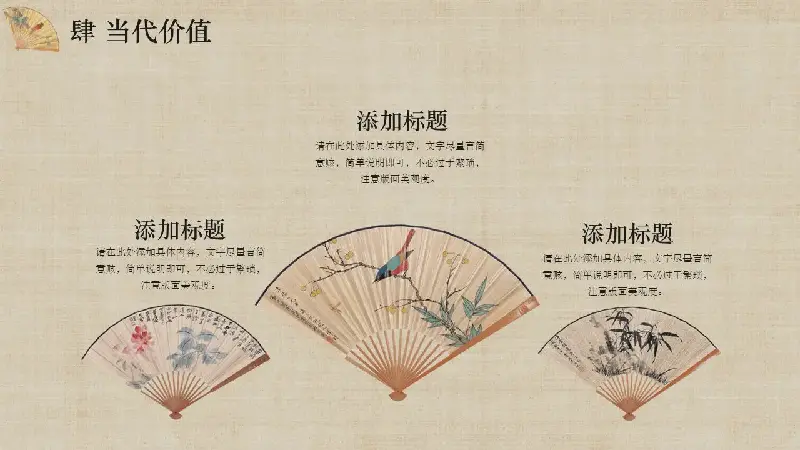 肆 当代价值
添加标题
请在此处添加具体内容，文字尽量言简
意赅，简单说明即可，不必过于繁琐，
注意版面美观度。
添加标题
请在此处添加具体内容，文字尽量言简
意赅，简单说明即可，不必过于繁琐，
注意版面美观度。
添加标题
请在此处添加具体内容，文字尽量言简
意赅，简单说明即可，不必过于繁琐，
注意版面美观度。